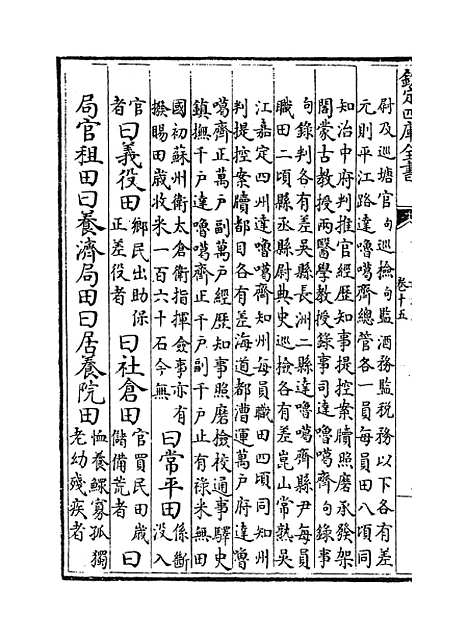 欽定四庫全書
卷十五
尉及巡塘官巡檢句監酒務監税務以下各有差
元則平江路達嚕噶齊總管各一員每員田八頃同
知治中府判推官經歷知事提控案牘照磨承發架
閣蒙古教授兩醫學教授録事司達嚕噶齊句録事
句録判各有差吳縣長洲二縣達嚕噶齊縣尹每員
職田二頃縣丞縣尉典史巡檢各有差崑山常熟吳
江嘉定四州達嚕噶齊知州每員職田四頃同知州
判提控案牘都目各有差海道都漕運萬戶府達嚕
噶齊正萬戶副萬戶經歷知事照磨檢校通事驛史
鎮撫千戶達嚕噶齊正千戶副千戶止有禄米無田
國初蘇州衛太倉衛指揮僉事亦有撥賜田歲收米一百六十石今無曰常平田係斷没入
官者曰義役田鄉民出助保正差役者曰社倉田官買民田歲儲備荒者曰
局官租田曰養濟局田曰居養院田恤養鰥寡孤獨老幼殘疾者